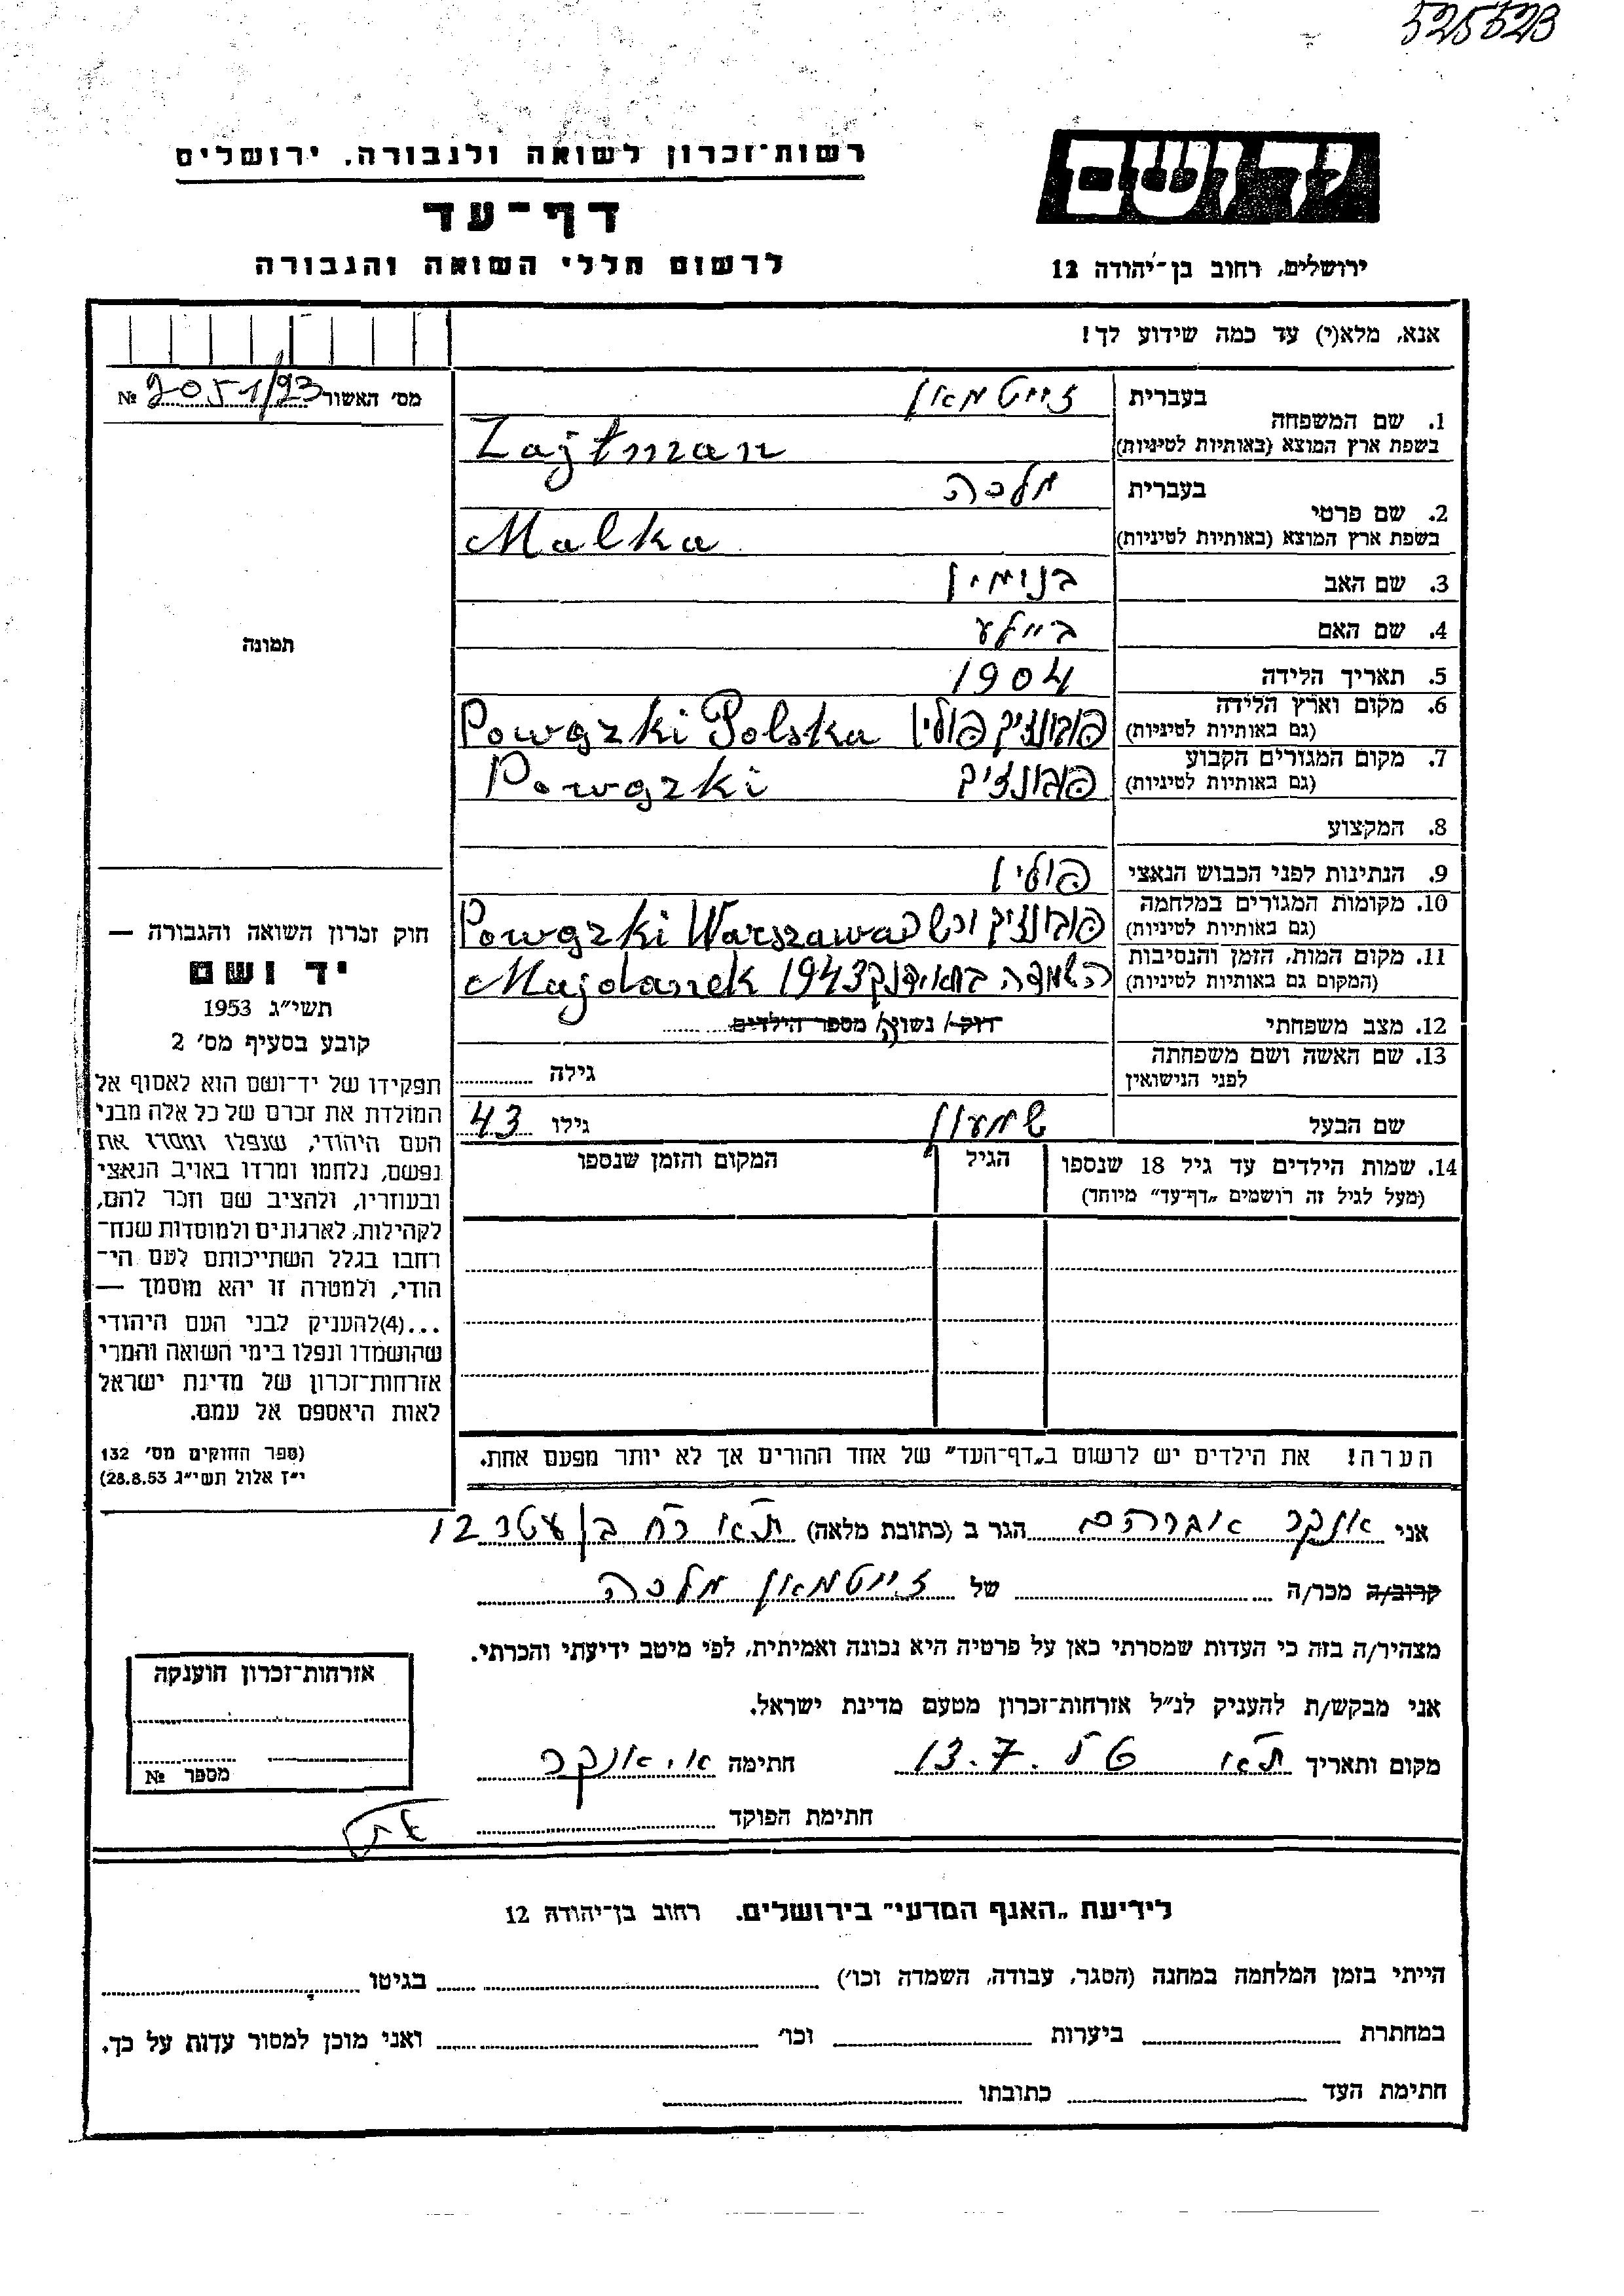 525523
ידושם
רשות־זכרון לשואה ולגבורה. ירושלים
דף־עד
ירושלים, רחוב בן־יהודה 12
לרשום חללי השואה והגבורה
אנא, מלא(י) עד כמה שידוע לך!
מס׳ האשור 2051/93 №
תמונה
1. שם המשפחה
בעברית זייטמאן
בשפת ארץ המוצא (באותיות לטיניות) Zajtman
2. שם פרטי
בעברית מלכה
בשפת ארץ המוצא (באותיות לטיניות) Malka
3. שם האב בנימין
4. שם האם ביילע
5. תאריך הלידה 1904
6. מקום וארץ הלידה
(גם באותיות לטיניות) פובונזיק פולין Powązki Polska
7. מקום המגורים הקבוע
(גם באותיות לטיניות) פובונזיק Powązki
8. המקצוע
9. הנתינות לפני הכבוש הנאצי פולין
10. מקומות המגורים במלחמה
(גם באותיות לטיניות) פובונזיק Powązki Warszawa
11. מקום המות, הזמן והנסיבות
(המקום גם באותיות לטיניות) השמדה במאידנק 1943 Majdanek
12. מצב משפחתי רוק/ה נשוי/ה מספר הילדים
13. שם האשה ושם משפחתה
לפני הנישואין גילה
שם הבעל שמעון גילו 43
14. שמות הילדים עד גיל 18 שנספו הגיל המקום והזמן שנספו
(מעל לגיל זה רושמים „דף־עד״ מיוחד)
הערה! את הילדים יש לרשום ב„דף־העד״ של אחד ההורים אך לא יותר מפעם אחת.
חוק זכרון השואה והגבורה —
יד ושם
תשי״ג 1953
קובע בסעיף מס׳ 2
תפקידו של יד־ושם הוא לאסוף אל
המולדת את זכרם של כל אלה מבני
העם היהודי, שנפלו ומסרו את
נפשם, נלחמו ומרדו באויב הנאצי
ובעוזריו, ולהציב שם וזכר להם,
לקהילות, לארגונים ולמוסדות שנח־
רבו בגלל השתייכותם לעם הי־
הודי, ולמטרה זו יהא מוסמך —
...(4)להעניק לבני העם היהודי
שהושמדו ונפלו בימי השואה והמרי
אזרחות־זכרון של מדינת ישראל
לאות היאספם אל עמם.
(ספר החוקים מס׳ 132
י״ז אלול תשי״ג 28.8.53)
אני אנקר אברהם הגר ב (כתובת מלאה) ת״א רח בן עטר 12
קרוב/ה מכר/ה של זייטמאן מלכה
מצהיר/ה בזה כי העדות שמסרתי כאן על פרטיה היא נכונה ואמיתית, לפי מיטב ידיעתי והכרתי.
אני מבקש/ת להעניק לנ״ל אזרחות־זכרון מטעם מדינת ישראל.
מקום ותאריך ת״א 13.7. חתימה א. אנקר
חתימת הפוקד
אזרחות־זכרון הוענקה
מספר №
לידיעת „האגף המדעי״ בירושלים. רחוב בן־יהודה 12
הייתי בזמן המלחמה במחנה (הסגר, עבודה, השמדה וכו׳) בגיטו
במחתרת ביערות וכו׳ ואני מוכן למסור עדות על כך.
חתימת העד כתובתו